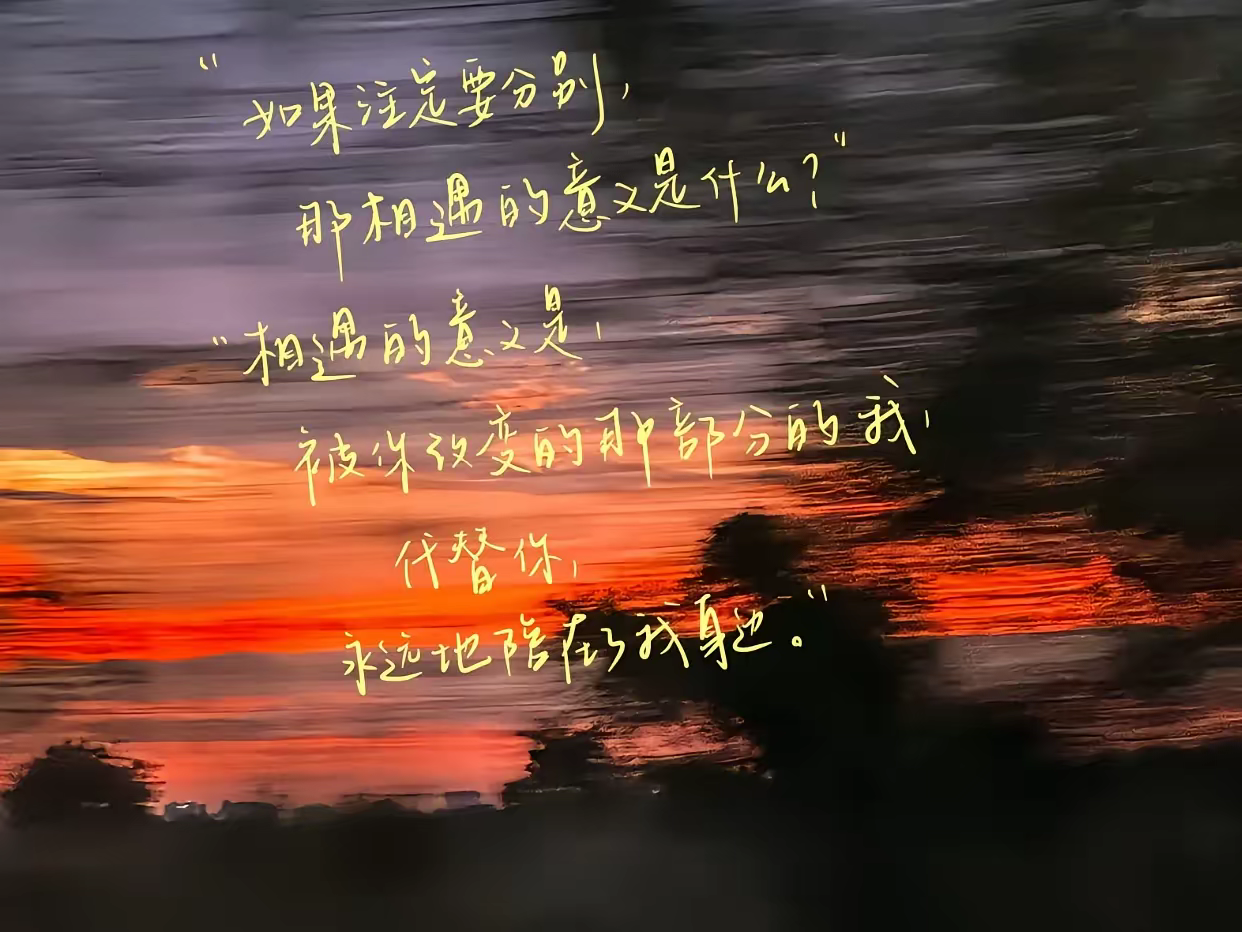 “如果注定要分别,
那相遇的意义是什么?”
“相遇的意义是,
被你改变的那部分的我,
代替你,
永远地陪在了我身边。”